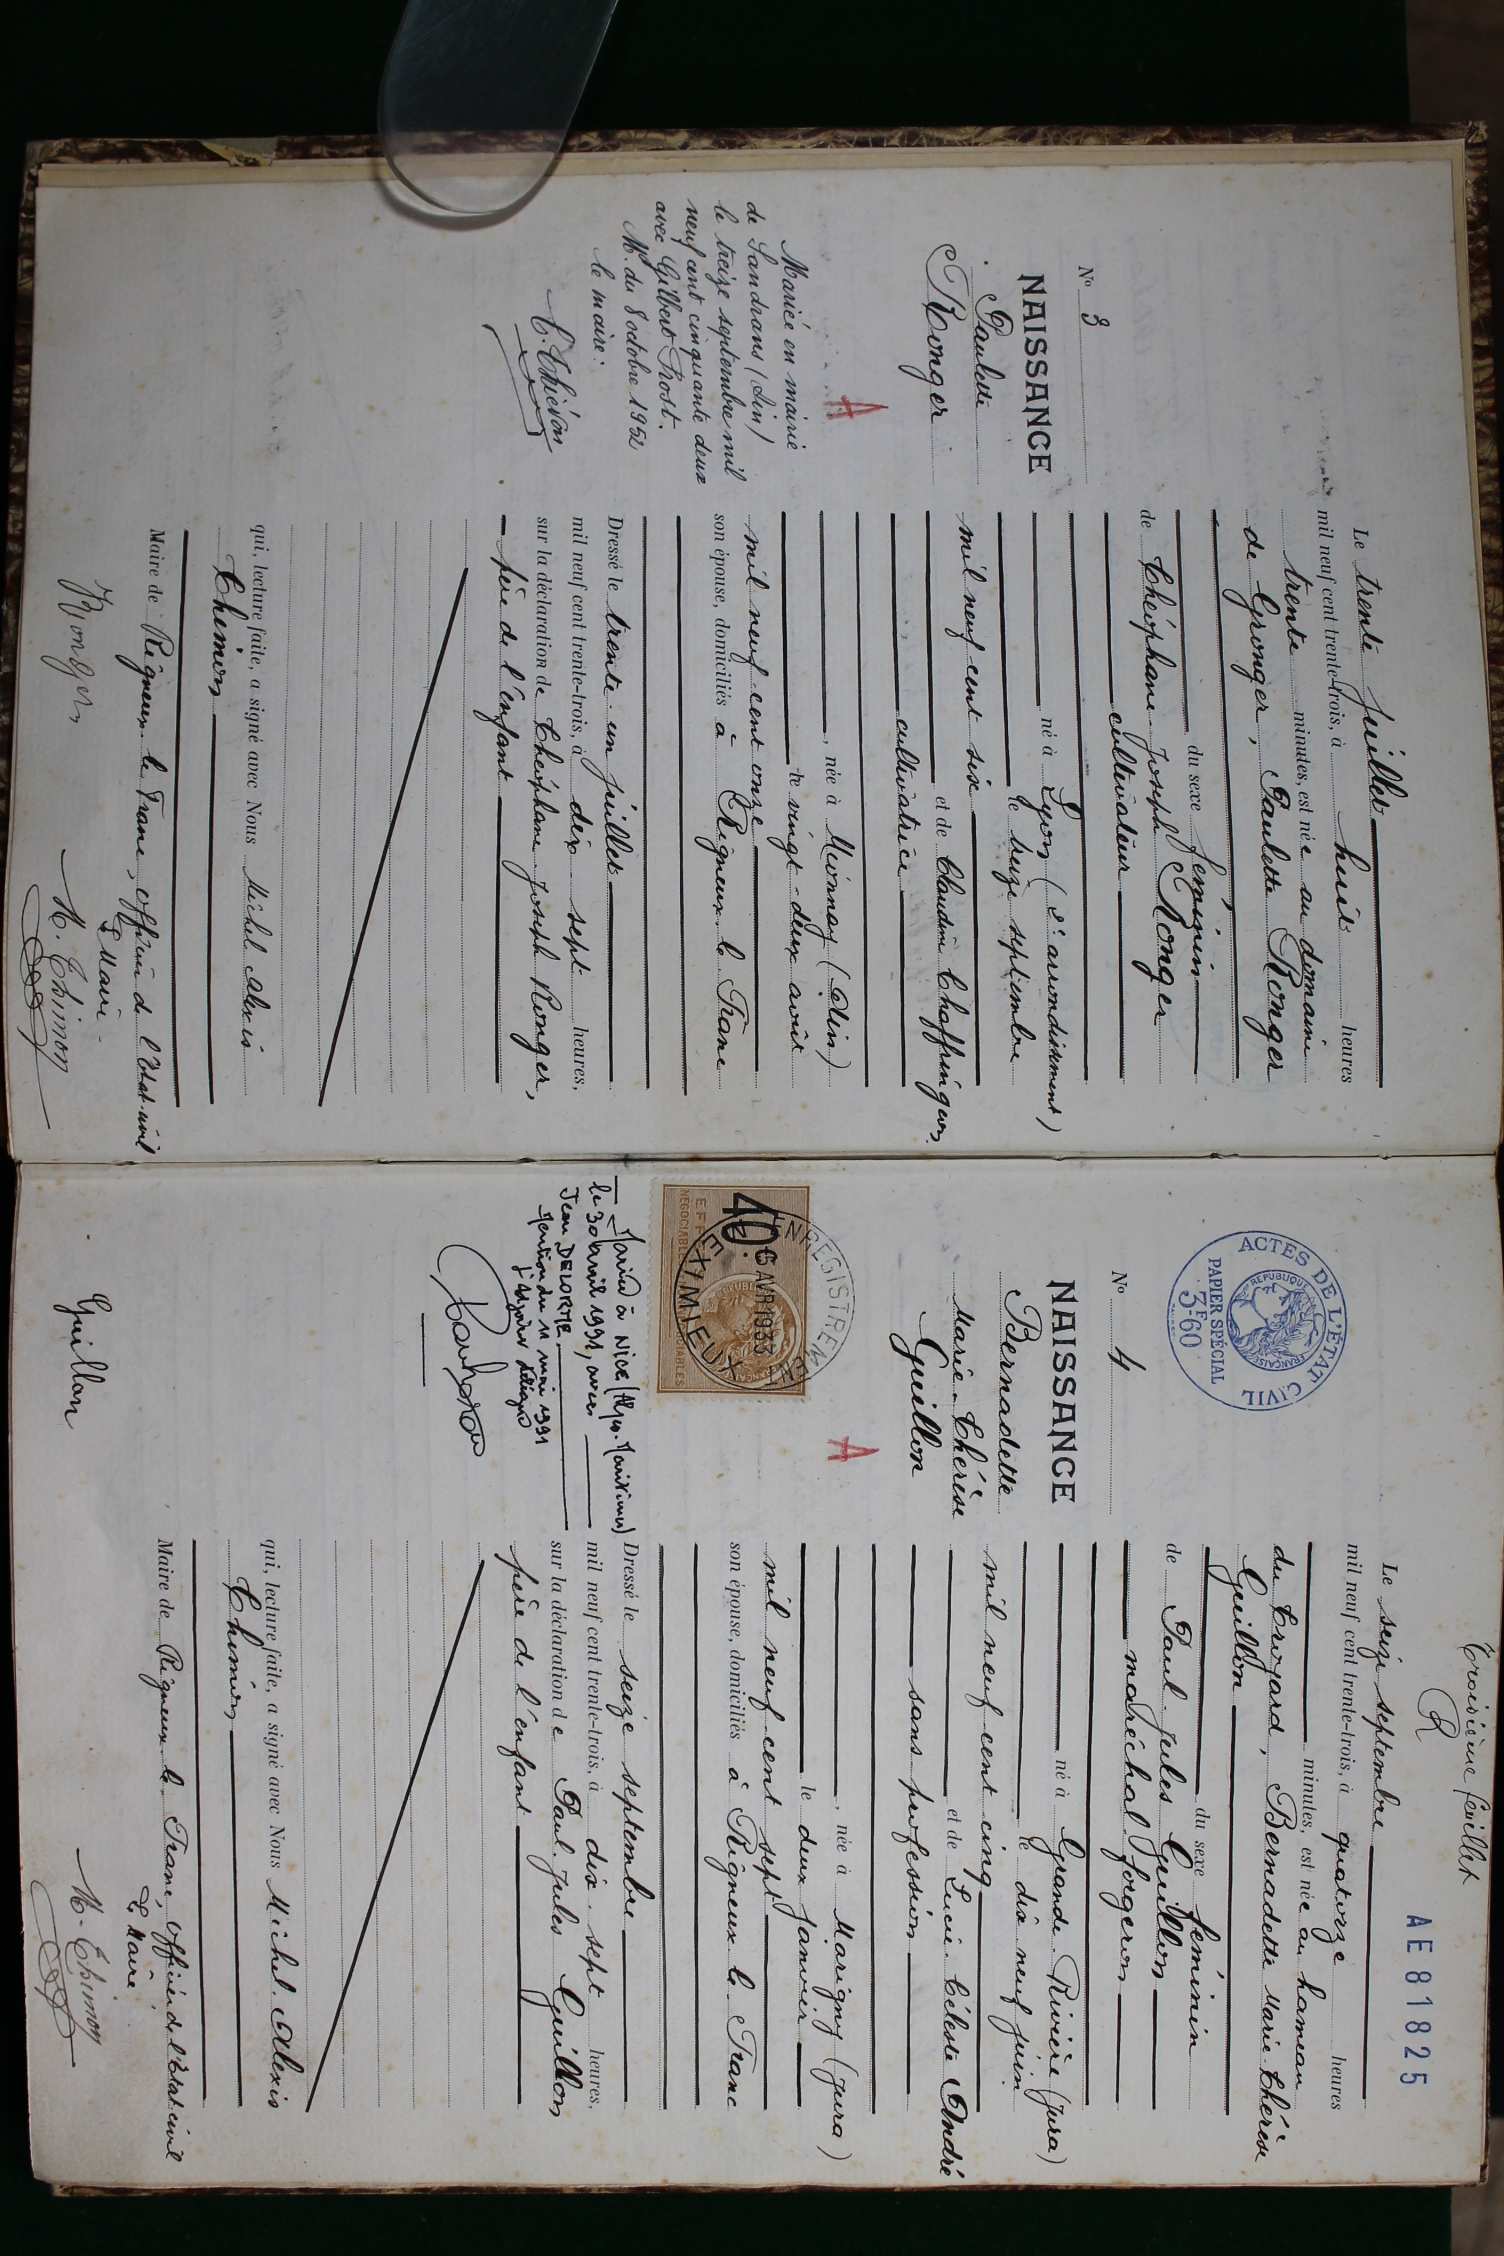 N° 3
NAISSANCE
Paulette
Ronger
A
Mariée en mairie
de Sandrans (Ain)
le treize septembre mil
neuf cent cinquante deux
avec Gilbert Prost.
Mn du 8 octobre 1952
le maire:
Le trente juillet
mil neuf cent trente-trois, à huit heures
trente minutes, est née au domaine
de Gronger, Paulette Ronger
du sexe féminin
de Théophane Joseph Ronger
cultivateur
né à Lyon (2e arrondissement)
le seize septembre
mil neuf cent six
et de Claudine Chaffringeon
cultivatrice
, née à Mionnay (Ain)
le vingt-deux août
mil neuf cent onze
son épouse, domiciliés à Rigneux le Franc
Dressé le trente un juillet
mil neuf cent trente-trois, à dix sept heures,
sur la déclaration de Théophane Joseph Ronger,
père de l'enfant
qui, lecture faite, a signé avec Nous Michel Alexis
Thimon
Maire de Rigneux le Franc, officier de l'Etat-civil
Le Maire
Ronger
M. Thimon
Troisième feuillet
R
AE81825
ACTES DE L'ÉTAT CIVIL
PAPIER SPÉCIAL
3F60
RÉPUBLIQUE FRANÇAISE
N° 4
NAISSANCE
Bernadette
Marie-Thérèse
Guillon
A
ENREGISTREMENT
40c
6 AVR 1933
MEXIMIEUX
EFFETS
NÉGOCIABLES
Mariée à Nice (Alpes-Maritimes)
le 30 avril 1991, avec
Jean DELORME
Mention du 11 mai 1991
Le seize septembre
mil neuf cent trente-trois, à quatorze heures
minutes, est née au hameau
du Croyard, Bernadette Marie-Thérèse
Guillon
du sexe féminin
de Paul Jules Guillon
maréchal forgeron
né à Grande-Rivière (Jura)
le dix neuf juin
mil neuf cent cinq
et de Lucie Céleste André
sans profession
, née à Marigny (Jura)
le deux janvier
mil neuf cent sept
son épouse, domiciliés à Rigneux le Franc
Dressé le seize septembre
mil neuf cent trente-trois, à dix-sept heures,
sur la déclaration de Paul Jules Guillon
père de l'enfant
qui, lecture faite, a signé avec Nous Michel Alexis
Thimon
Maire de Rigneux le Franc, officier de l'Etat civil
Le Maire
Guillon
M. Thimon